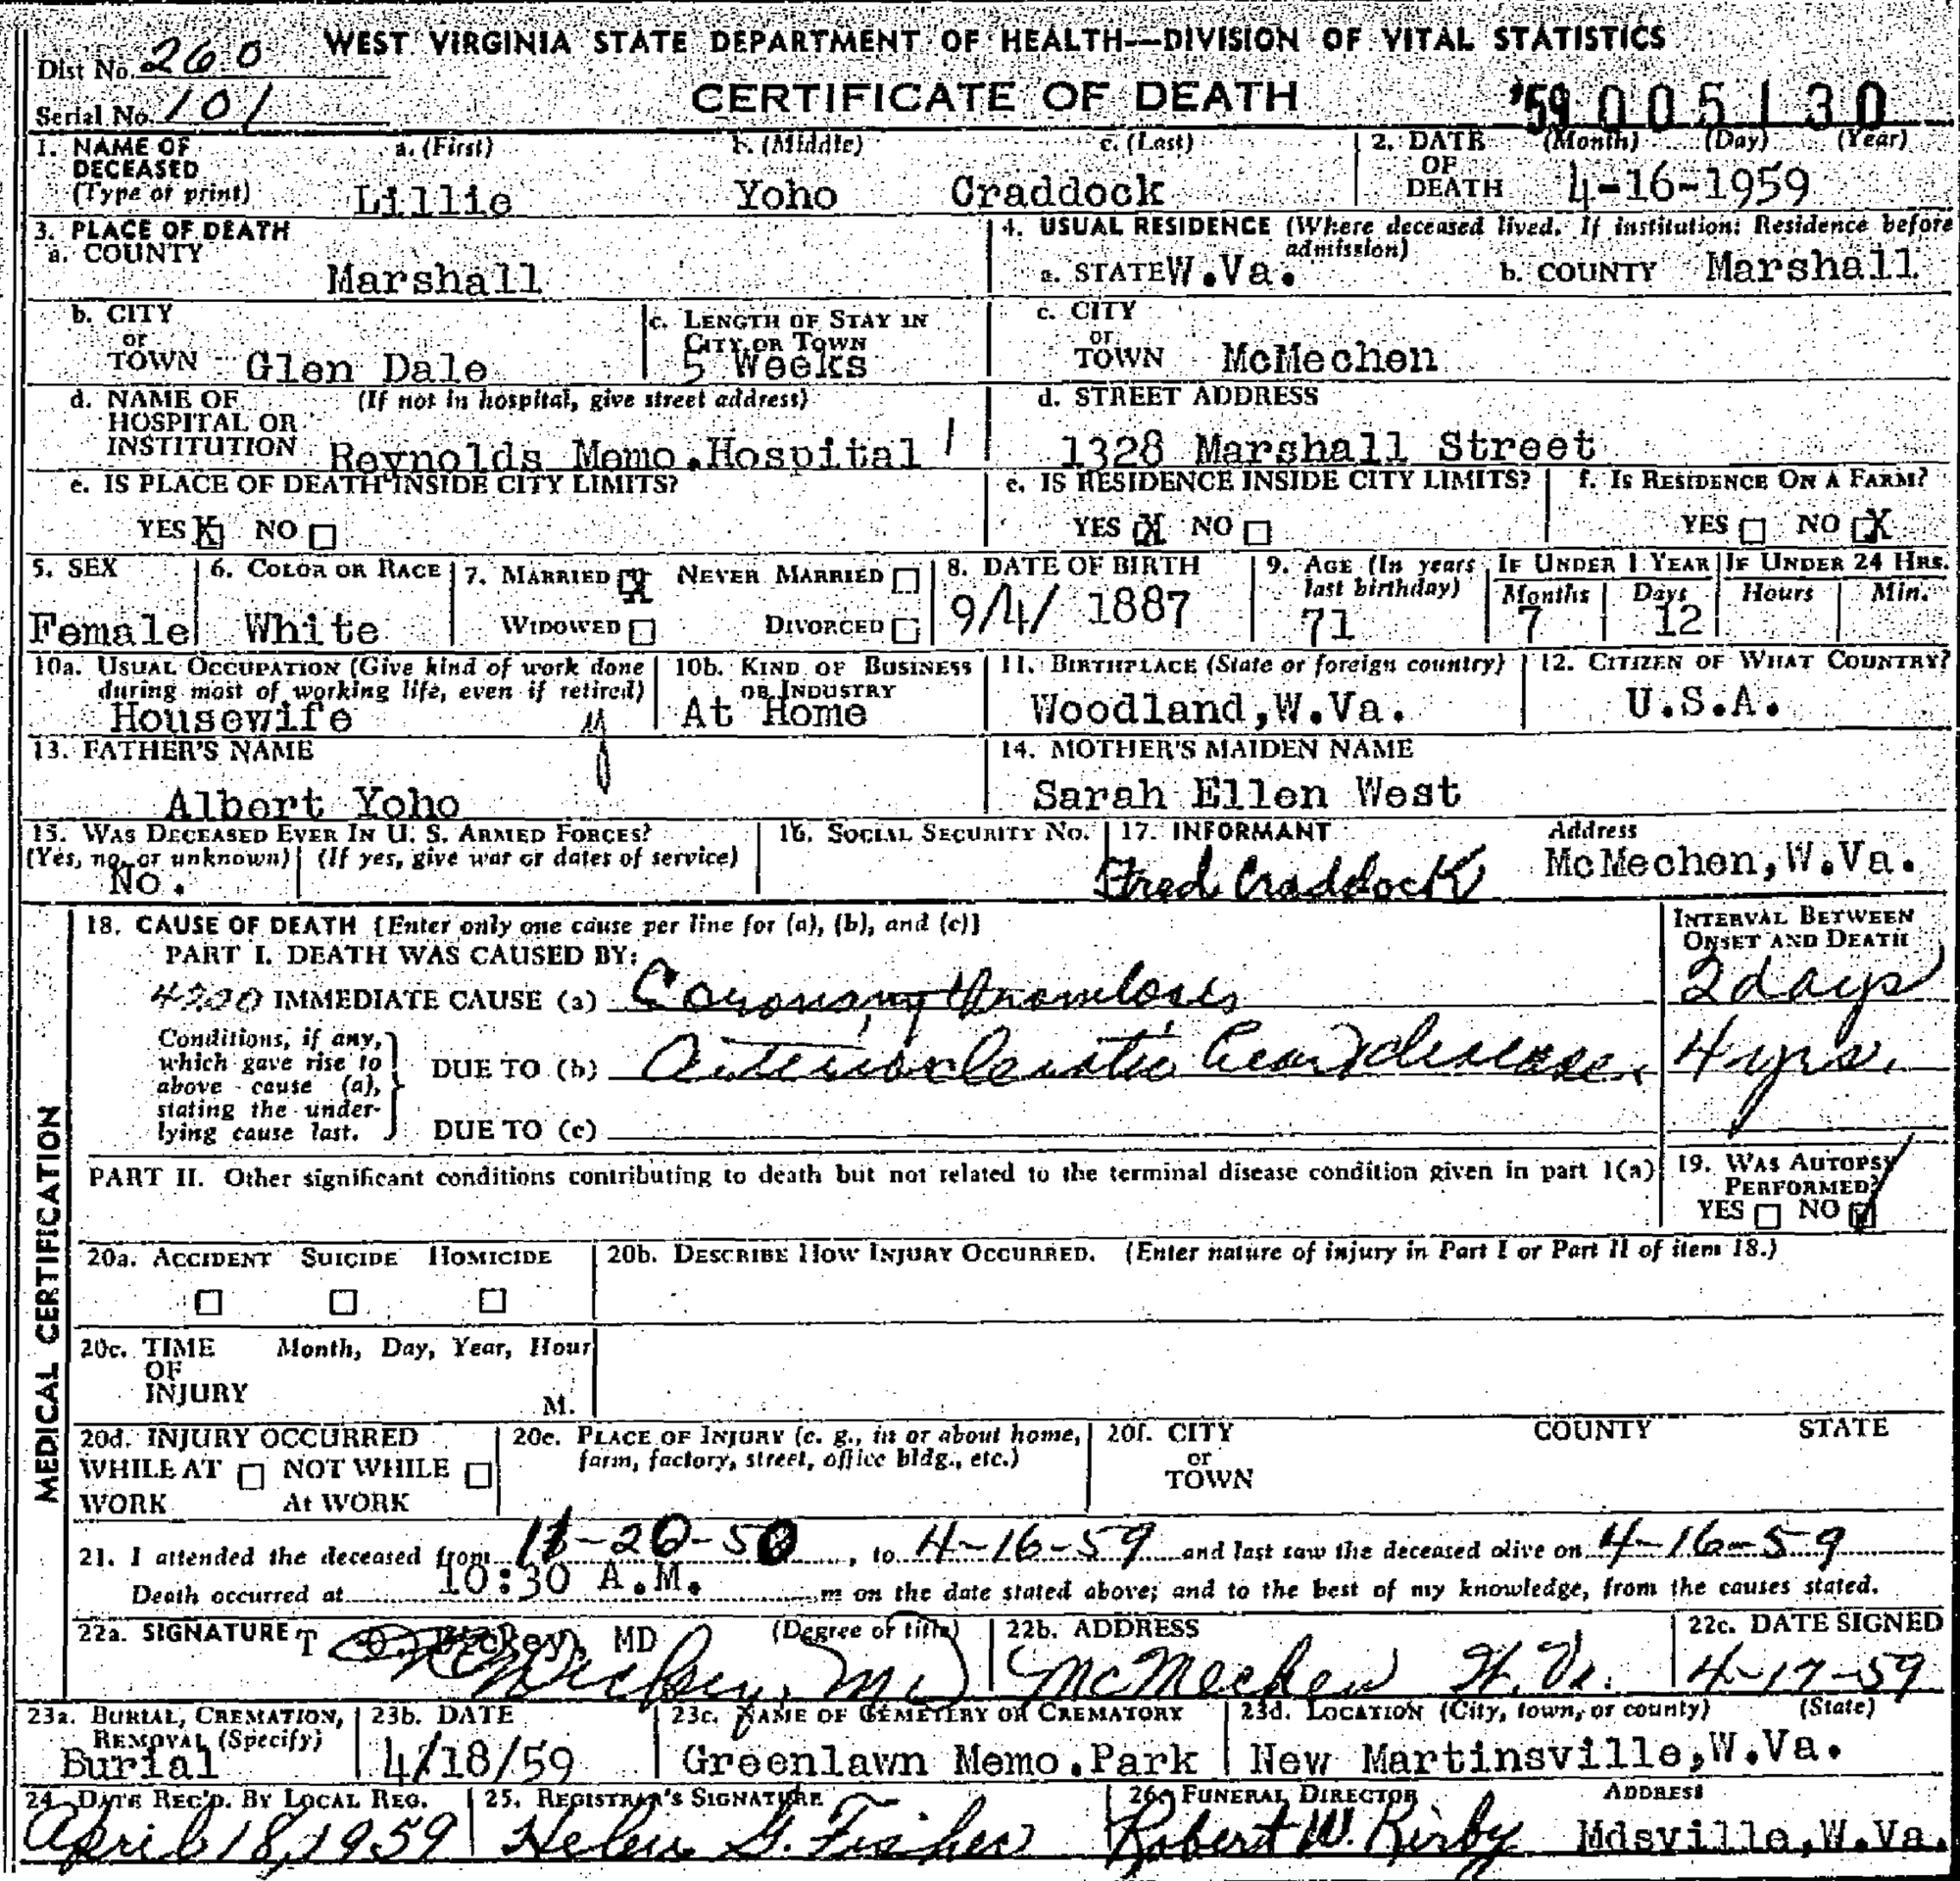 WEST VIRGINIA STATE DEPARTMENT OF HEALTH—DIVISION OF VITAL STATISTICS
Dist No. 260
Serial No. 101
CERTIFICATE OF DEATH
'59 005130
1. NAME OF DECEASED (Type or print) a. (First) b. (Middle) c. (Last)
Lillie Yoho Craddock
2. DATE OF DEATH (Month) (Day) (Year)
4-16-1959
3. PLACE OF DEATH
a. COUNTY
Marshall
4. USUAL RESIDENCE (Where deceased lived. If institution: Residence before admission)
a. STATE W.Va. b. COUNTY Marshall
b. CITY or TOWN Glen Dale
c. LENGTH OF STAY IN CITY OR TOWN
5 Weeks
c. CITY or TOWN McMechen
d. NAME OF HOSPITAL OR INSTITUTION (If not in hospital, give street address)
Reynolds Memo.Hospital
d. STREET ADDRESS
1328 Marshall Street
e. IS PLACE OF DEATH INSIDE CITY LIMITS?
YES X NO
e. IS RESIDENCE INSIDE CITY LIMITS?
YES X NO
f. IS RESIDENCE ON A FARM?
YES NO X
5. SEX
Female
6. COLOR OR RACE
White
7. MARRIED X NEVER MARRIED
WIDOWED DIVORCED
8. DATE OF BIRTH
9/4/ 1887
9. AGE (In years last birthday)
71
IF UNDER 1 YEAR IF UNDER 24 HRS.
Months Days Hours Min.
7 12
10a. USUAL OCCUPATION (Give kind of work done during most of working life, even if retired)
Housewife
10b. KIND OF BUSINESS OR INDUSTRY
At Home
11. BIRTHPLACE (State or foreign country)
Woodland,W.Va.
12. CITIZEN OF WHAT COUNTRY?
U.S.A.
13. FATHER'S NAME
Albert Yoho
14. MOTHER'S MAIDEN NAME
Sarah Ellen West
15. WAS DECEASED EVER IN U. S. ARMED FORCES?
(Yes, no, or unknown) (If yes, give war or dates of service)
No.
16. SOCIAL SECURITY NO.
17. INFORMANT Address
Fred Craddock McMechen,W.Va.
18. CAUSE OF DEATH [Enter only one cause per line for (a), (b), and (c)]
INTERVAL BETWEEN ONSET AND DEATH
PART I. DEATH WAS CAUSED BY:
4200 IMMEDIATE CAUSE (a) Coronary thrombosis 2 days
Conditions, if any, which gave rise to above cause (a), stating the underlying cause last.
DUE TO (b) Arteriosclerotic heart disease. 4 yrs.
DUE TO (c)
PART II. Other significant conditions contributing to death but not related to the terminal disease condition given in part 1(a)
19. WAS AUTOPSY PERFORMED?
YES NO
20a. ACCIDENT SUICIDE HOMICIDE
20b. DESCRIBE HOW INJURY OCCURRED. (Enter nature of injury in Part I or Part II of item 18.)
20c. TIME OF INJURY Month, Day, Year, Hour
M.
20d. INJURY OCCURRED
WHILE AT WORK NOT WHILE At WORK
20e. PLACE OF INJURY (e. g., in or about home, farm, factory, street, office bldg., etc.)
20f. CITY or TOWN COUNTY STATE
21. I attended the deceased from , to 4-16-59 and last saw the deceased alive on 4-16-59
Death occurred at 10:30 A.M. m on the date stated above; and to the best of my knowledge, from the causes stated.
22a. SIGNATURE (Degree of title)
MD
22b. ADDRESS
McMechen W. Va.
22c. DATE SIGNED
4-17-59
23a. BURIAL, CREMATION, REMOVAL (Specify)
Burial
23b. DATE
4/18/59
23c. NAME OF CEMETERY OR CREMATORY
Greenlawn Memo.Park
23d. LOCATION (City, town, or county) (State)
New Martinsville,W.Va.
24. DATE REC'D. BY LOCAL REG.
April 18, 1959
25. REGISTRAR'S SIGNATURE
Helen G. Fisher
26. FUNERAL DIRECTOR ADDRESS
Robert W. Kirby Mdsville,W.Va.
MEDICAL CERTIFICATION